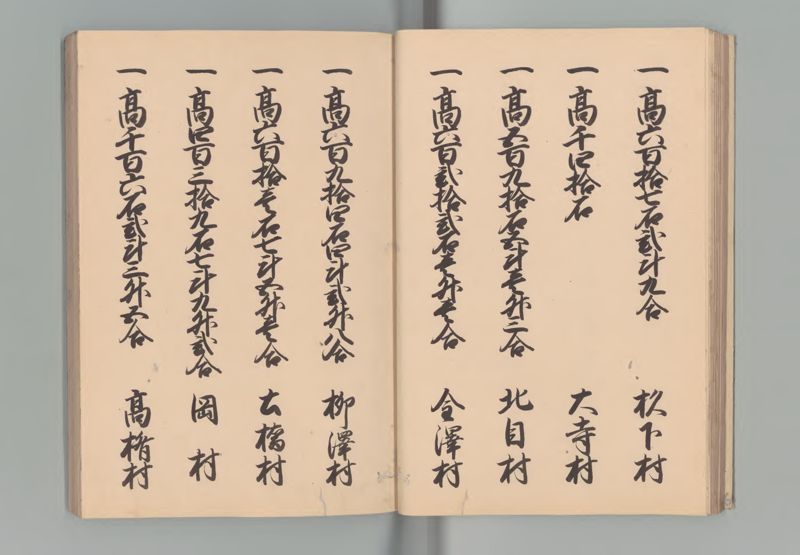 一高六百拾七石弐斗九合　杦下村
一高千四拾石　大寺村
一高五百九拾石五斗壱升三合　北目村
一高六百弐拾弐石壱升壱合　金澤村
一高六百九拾四石四斗弐升八合　柳澤村
一高六百拾壱石七斗五升壱合　大楢村
一高四百三拾九石七斗九升弐合　岡村
一高千百六石弐斗三升五合　高楯村